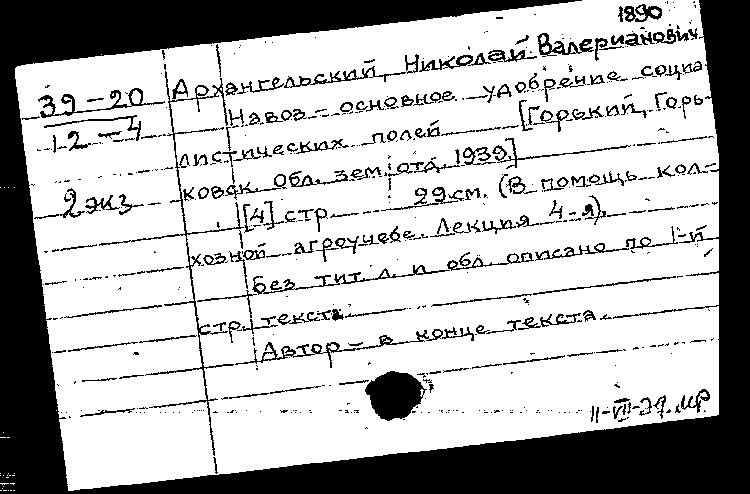 1890
39-20
12-4
2 экз
Архангельский, Николай Валерианович
Навоз - основное удобрение социа-
листических полей [Горький, Горь-
ковск. обл. зем. отд. 1939.]
[4] стр. 29 см. (В помощь кол-
хозной агроучебе. Лекция 4-я).
Без тит. л. и обл. описано по 1-й
стр. текста.
Автор - в конце текста.
11-VIII-39. МР